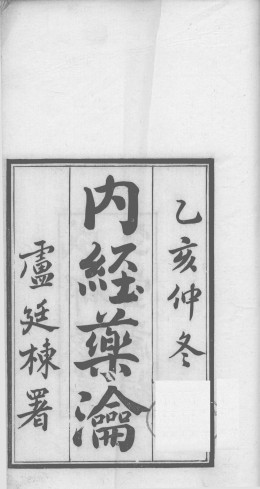 乙亥仲冬
内经藥瀹
盧廷棟署